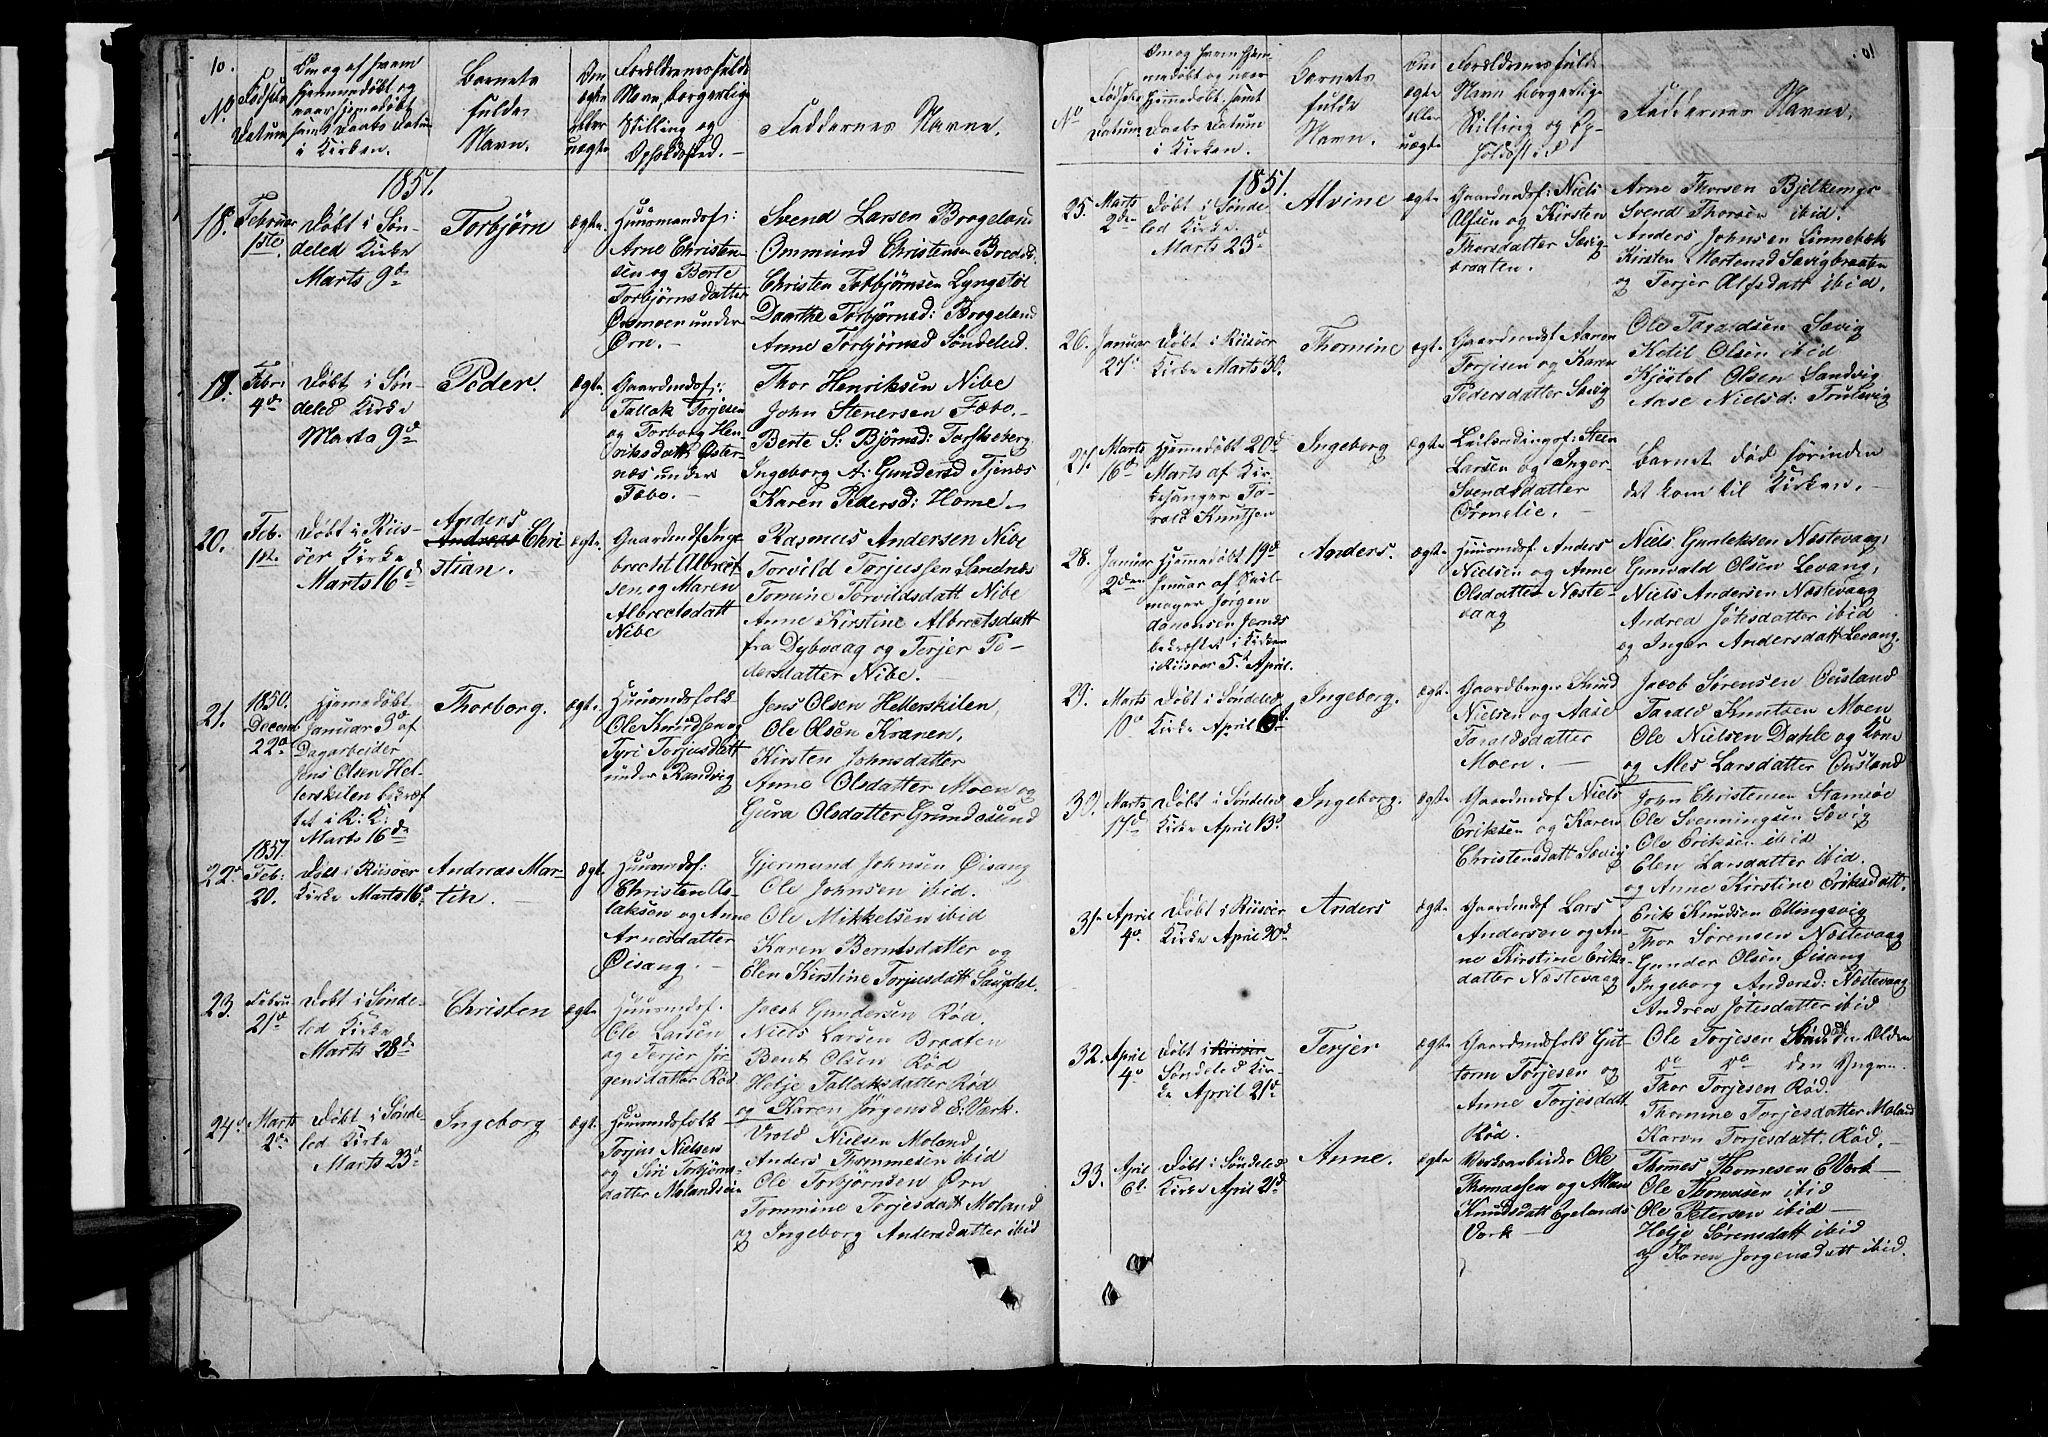 10.
No
Fødsels
Datum
Om og af hvem
hjemmedøbt og
naar hjemedøbt
samt Daabs Datum
i Kirken.
Barnets
fulde
Navn.
Om
ægte
eller
uægte
Forældrenes fulde
Navn, borgerlige
Stilling og
Opholdsted. —
Faddernes Navne.
1851.
18.
Februar
1ste
Døbt i Søn-
deled Kirke
Marts 9de
Torbjörn
ægte.
Huusmandsf:
Arne Christen-
sen og Berte
Torbjörnsdatter
under
Örn. —
Svend Larsen Brogeland
Ommund Christensen
Christen Torbjörnsen Lyngstöl
Daarthe Torbjörnsd: Brogeland
Anne Torbjörnsd Söndeled.
19.
Febr:
4de
Döbt i Sön-
deled Kirke
Marts 9de
Peder.
ægte
Gaardmdsf:
Tallak Torjesen
og Torborg Hen-
riksdatt Öster-
næs under
Fæbo. —
Thor Henriksen Nibe
John Stenersen Fæbo. —
Berte S: Björnsd:
Ingeborg A: Gundersd
Karen Pedersd: Home. —
20.
Feb.
12.
Döbt i Riis-
öer Kirke
Marts 16de
Anders
Andreas Chri
stian.
ægte.
Gaardmdsf Inge
brectet Albret
sen og Maren
Albrectsdatt
Nibe
Rasmus Andersen Nibe
Torvild Torjussen Sandnæs
Tomine Torvildsdatt Nibe
Anne Kirstine Albretsdatt
fra Dybvaag og Terjer Pe-
dersdatter Nibe.
21.
1850.
Decemb
22de
Hjemedöbt
Januar 3de af
Dagarbeider
Jens Olsen Hel-
lerskilen bekræf
tet i R: K:
Marts 16de
Thorborg.
ægte.
Huusmdsfolk
Ole Knudsen og
Tyri Torjusdatt
under Randvig
Jens Olsen Hellerskilen
Ole Olsen Kranen.
Kirsten Johnsdatter
Anne Olsdatter Moen og
Gura Olsdatter Grundesund
1851.
22.
Feb:
20.
Döbt i Riisöer
Kirke Marts 16de
Andreas Mar-
tin. —
ægt.
Huusmdsf:
Christen As-
laksen og Anne
Arnesdatter
Öisang. —
Gjermund Johnsen Öisang
Ole Johnsen ibid.
Ole Mikkelsen ibid
Karen Berntsdatter og
Elen Kirstine Torjusdatt
23.
Febru-
21de
Döbt i Sönde-
led Kirke
Marts 28de
Christen
ægte
Huusmdsf.
Ole Larsen
og Terjer Jör-
gensdatter Röd
Jacob Gundersen Röd.
Niels Larsen Braaten
Bent Olsen Röd
Helje Tallaksdatter Röd
og Karen Jörgensd E: Værk.
24de
Marts
2de
Döbt i Sönde-
led Kirke
Marts 23de
Ingeborg
ægt.
Huusmdsfolk
Torjus Nielsen
og Siri Torbjörns-
datter
Vrold Nielsen Moland
Anders Thommesen ibid
Ole Torbjörnsen Örn
Tommine Torjesdatt Moland
og Ingeborg Andersdatter ibid
No
Födsels
Datum
Om og hvem hjem-
medöbt og naar
hjemmedöbt. samt
Daabs Datum
i Kirken.
Barnets
fulde
Navn.
Om
ægte
eller
uægte
Forældrenes fulde
Navn borgerlige
Stilling og Op-
holdsted
Faddernes Navne.
1851.
25.
Marts
2de
Döbt i Sönde-
led Kirke.
Marts 23de
Alvine
ægte
Gaardmdsf: Niels
Alfsen og Kirsten
Thorsdatter Sævig
braaten.
Arne Thorsen
Svend Thorsen ibid.
Anders Johnsen
Kirsten Mortensd Sævigbraaten
og Terjer Alfsdatt ibid.
26.
Januar
27de
Döbt i Riisöer
Kirke Marts 30.
Thomine
ægte
Gaardmdsf Aaren
Torjesen og Karen
Pedersdatter Sævig
Ole Taraldsen Sævig
Ketil Olsen ibid
Kjöstel Olsen Sandvig
Aase Nielsd: Trulsvig
27.
Marts
16de
Hjemedöbt 20de
Marts af Kir-
kesanger Ta-
rald Knutsen
Ingeborg
ægte
Steen
Larsen og Inger
Svendsdatter
Ormelie.
Barnet död förinden
det kom til Kirken. —
28.
Januar
2den
Hjemedöbt 19de
Januar af
mager Jörgen
bekræftet i Kirken
i Riisöer 5te April.
Anders.
ægte.
Huusmdsf. Anders
Nielsen og Anne
Olsdatter Næste-
vaag
Niels Gunleksen Næstevaag,
Gunvald Olsen Levang,
Niels Andersen Næstevaag
Andrea Jötesdatter ibid
og Inger Andersdatt Levang.
29.
Marts
Döbt i Söndeled
Kirke April 6de
Ingeborg.
ægte.
Gaardbruger Knud
Nielsen og Aase
Taraldsdatter
Moen. —
Jacob Sörensen Ousland
Tarald Knutsen Moen
Ole Nielsen Dahle og Kone
og Ales Larsdatter Ousland
30.
Marts
17de
Döbt i Söndeled
Kirke April 13de
Ingeborg.
ægte.
Gaardmdsf Niels
Eriksen og Karen
Christensdatt Sævig
John Christensen Stamsöe
Ole Svenningsen Sævig
Ole Eriksen ibid
Elen Larsdatter ibid.
og Anne Kirstine Eriksdatt.
31te
April
4de
Döbt i Riisöer
Kirke April 20de
Anders
ægte
Gaardmdsf Lars
Andersen og An-
ne Kirstine Eriks-
datter Næstevaag
Erik Knudsen Ellingsvig
Thor Sörensen Næstevaag
Gunder Olsen Öisang
Ingeborg Andersd: Næstevaag
Andrea Jötesdatter ibid
32.
April
4de
Döbt i Riisöer
Söndeled Kir-
ke April 21de
Terjer
ægte
Gaardmdsfolk Gut-
torm Torjesen og
Anne Torjesdatt
Röd.
Ole Torjesen Röd den Ældre
do do den Yngre.
Thor Torjesen Röd.
Thomine Torjesdatter Moland
Karen Torjesdatt. Röd. —
33.
April
6te.
Döbt i Söndeled
Kirke April 21de
Anne.
ægte
Værksarbeider Ole
Thomassen og
Knudsdatt Egelands
Værk —
Thomes Thomesen E Værk —
Ole Thomasen ibid
Ole Petersen ibid —
Helje Sörensdatt ibid
og Karen Jörgensdatt ibid.